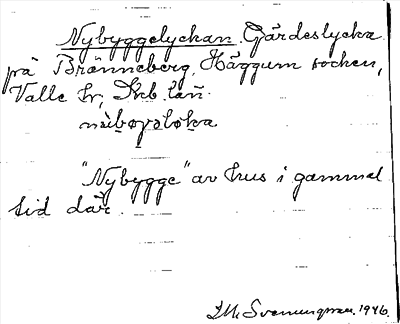 Nybyggelyckan. Gärdeslycka
på Bränneberg, Häggum socken,
Valle hr, Skb. län.
"Nybygge" av hus i gammal
tid där.
1946.